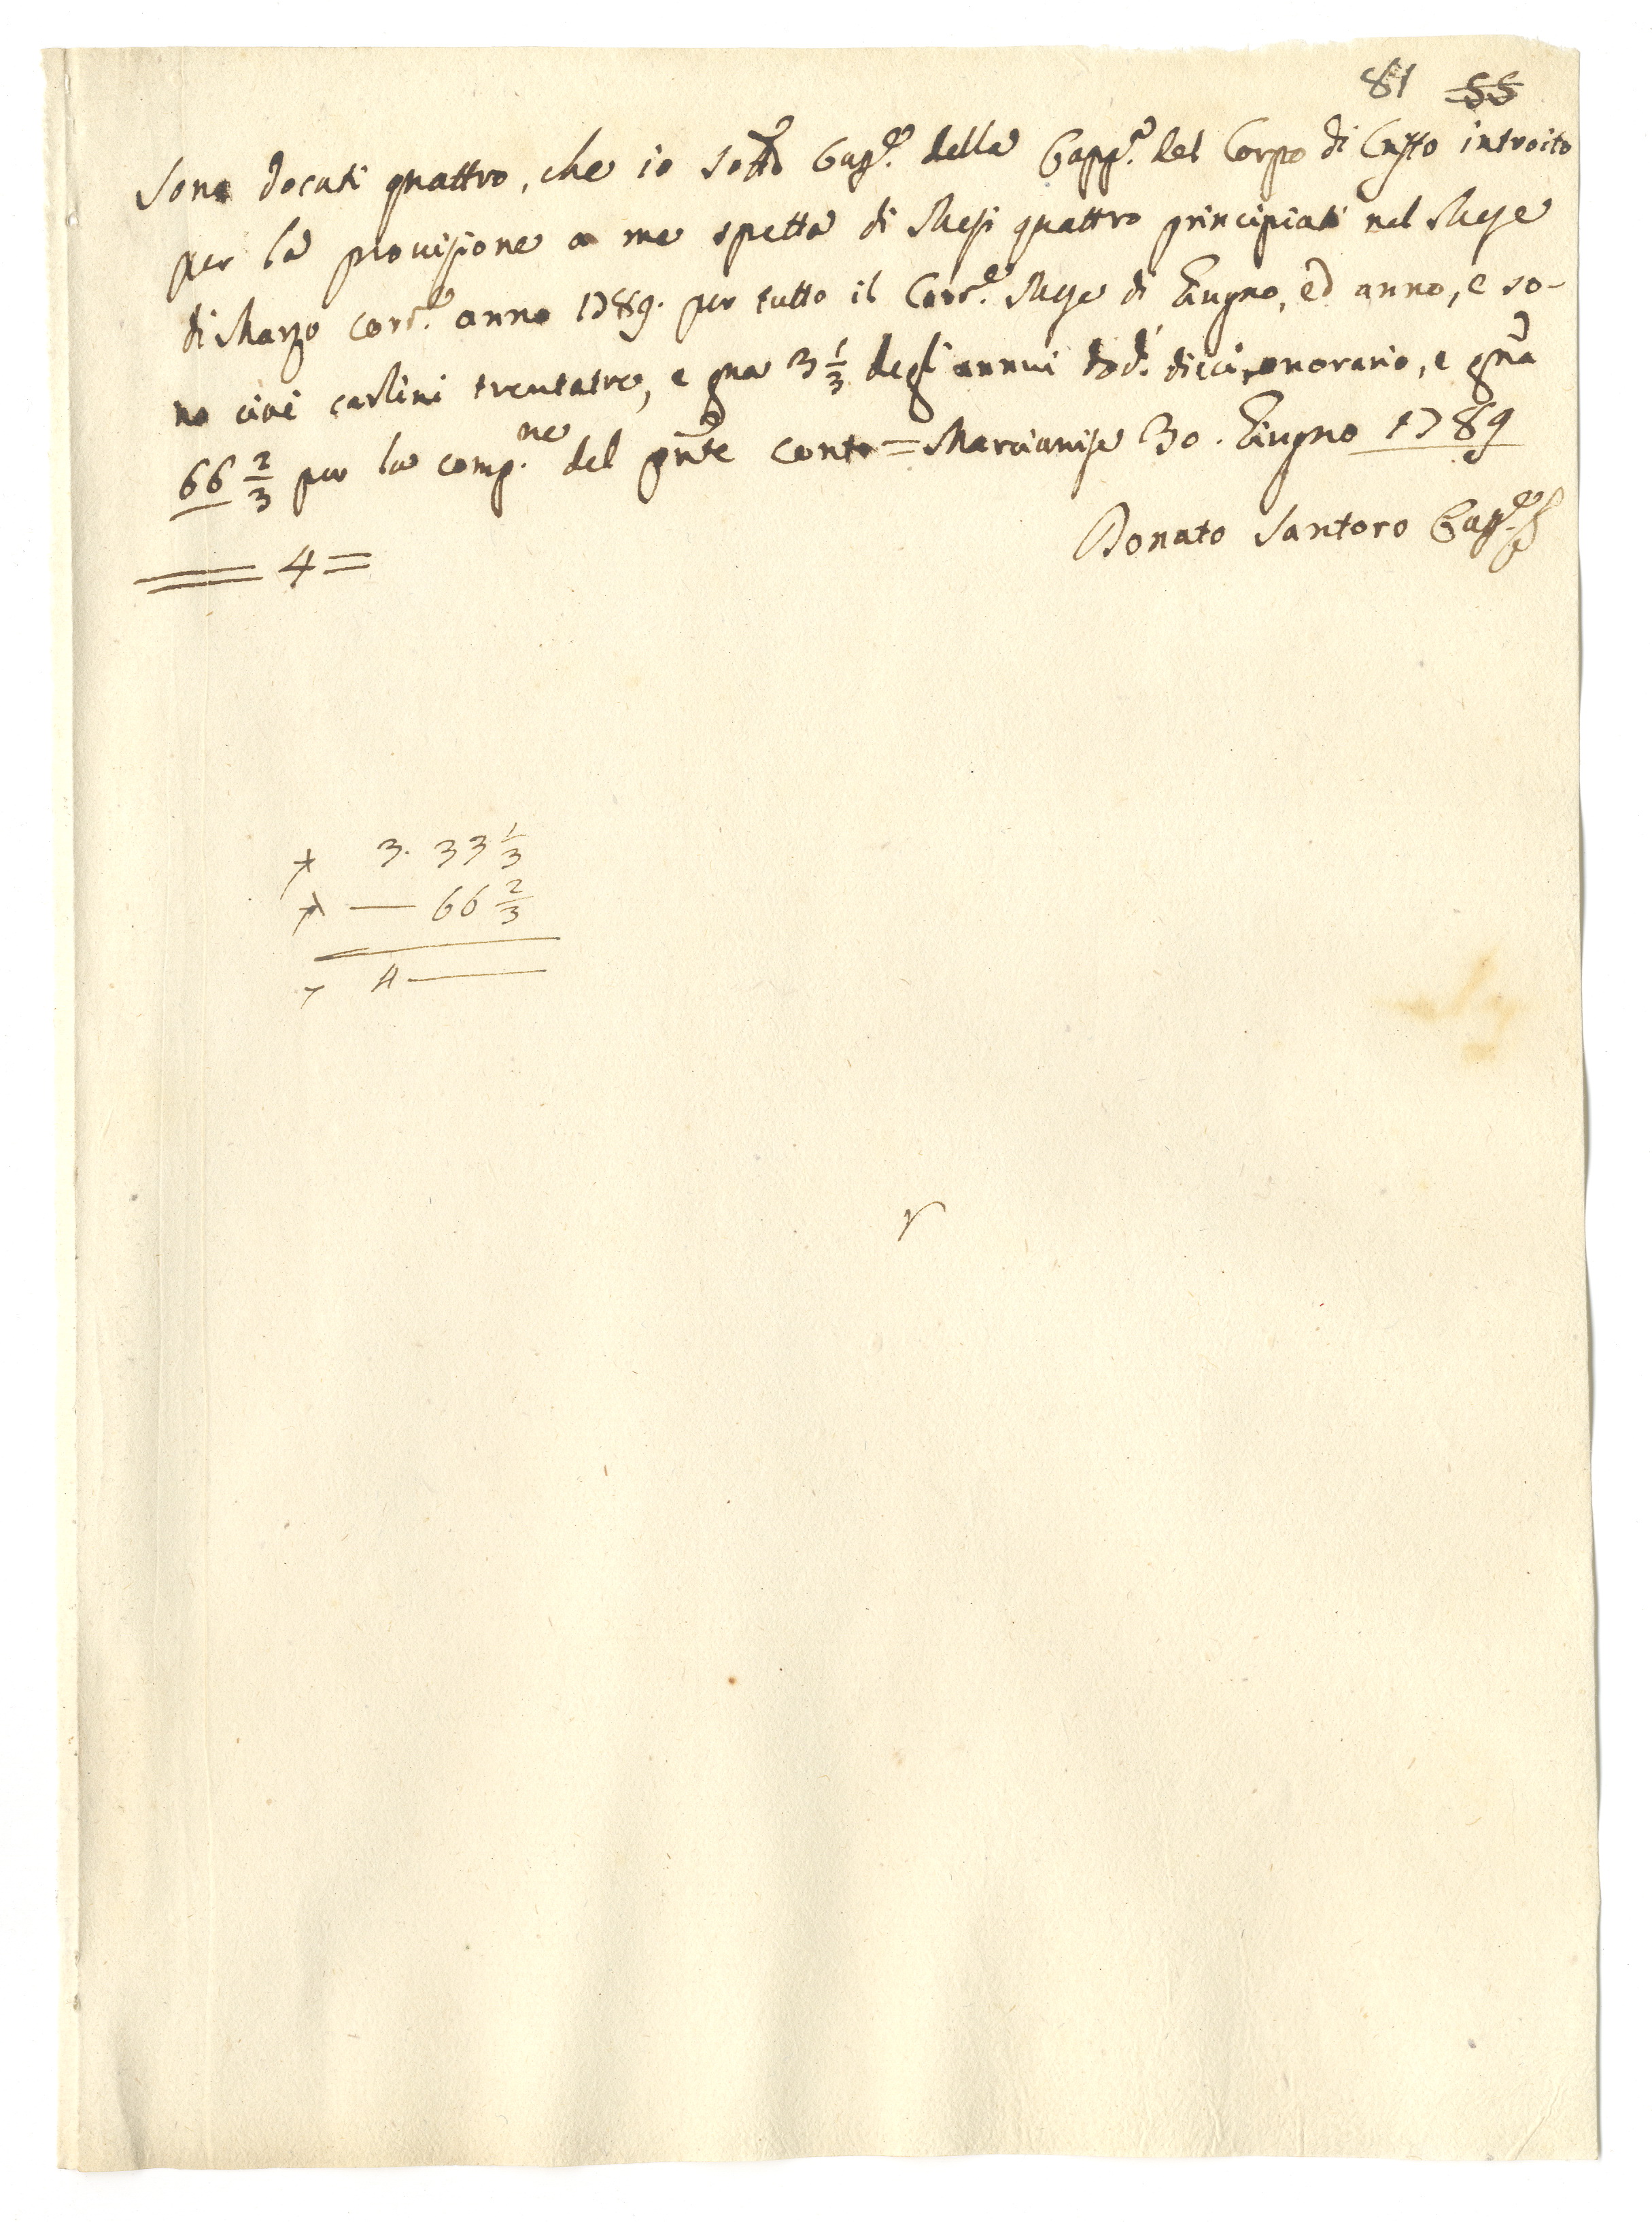 81 55
Sono docati quattro, che io sotto Cap.e della Capp.a del Corpo di Cristo introito
per la provisione a me spetta di Mesi quattro principiati nel Mese
di Marzo corr.e anno 1789. per tutto il Corr.e Mese di Giugno, ed anno, e so-
no cioè carlini trentatre, e gna 3 1/3 degl'annui dod.i dieci onorario, e gna
66 2/3 per la comp.ne del pnte conto = Marcianise 30. Giugno 1789
Donato Santoro Cap.e
4 =
3. 33 1/3
— 66 2/3
4 —